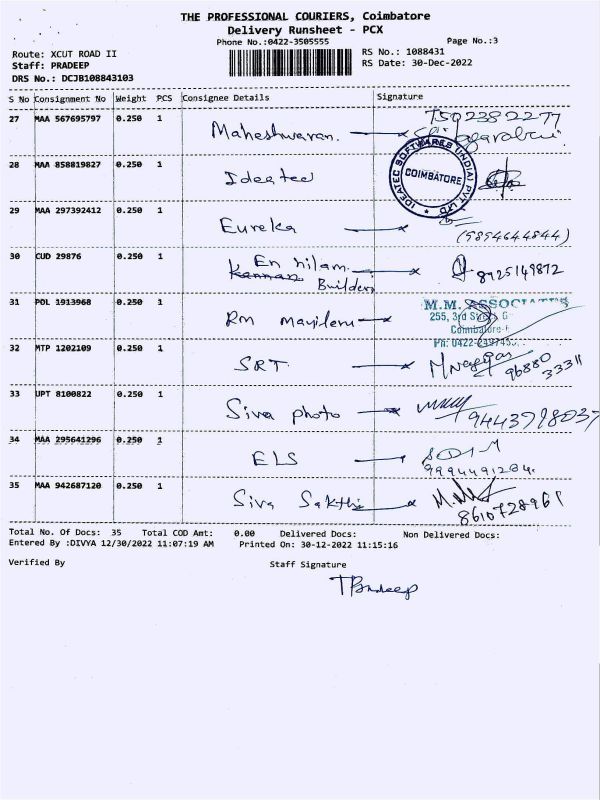 THE PROFESSIONAL COURIERS, Coimbatore
Delivery Runsheet - PCX
Phone No.:0422-3505555
Page No.:3
Route: XCUT ROAD II
RS No.: 1088431
Staff: PRADEEP
RS Date: 30-Dec-2022
DRS No.: DCJB108843103
S No Consignment No Weight PCS Consignee Details Signature
27 MAA 567695797 0.250 1 Maheshwaran.
28 MAA 858819827 0.250 1 Ideatec
IDEATEC SOFTWARES (INDIA) PVT LTD
COIMBATORE
29 MAA 297392412 0.250 1 Eureka
(9894644844)
30 CUD 29876 0.250 1 En nilam
Kannan Builders
8925149872
31 POL 1913968 0.250 1 Rm
M.M. ASSOCIATES
255, 3rd
Coimbatore
Ph: 0422-
32 MTP 1202109 0.250 1 SRT.
96880
33311
33 UPT 8100822 0.250 1 Siva photo
9443798037
34 MAA 295641296 0.250 1 ELS
9994491284.
35 MAA 942687120 0.250 1 Siva Sakthi
8610728961
Total No. Of Docs: 35 Total COD Amt: 0.00 Delivered Docs: Non Delivered Docs:
Entered By :DIVYA 12/30/2022 11:07:19 AM Printed On: 30-12-2022 11:15:16
Verified By Staff Signature
T Pradeep